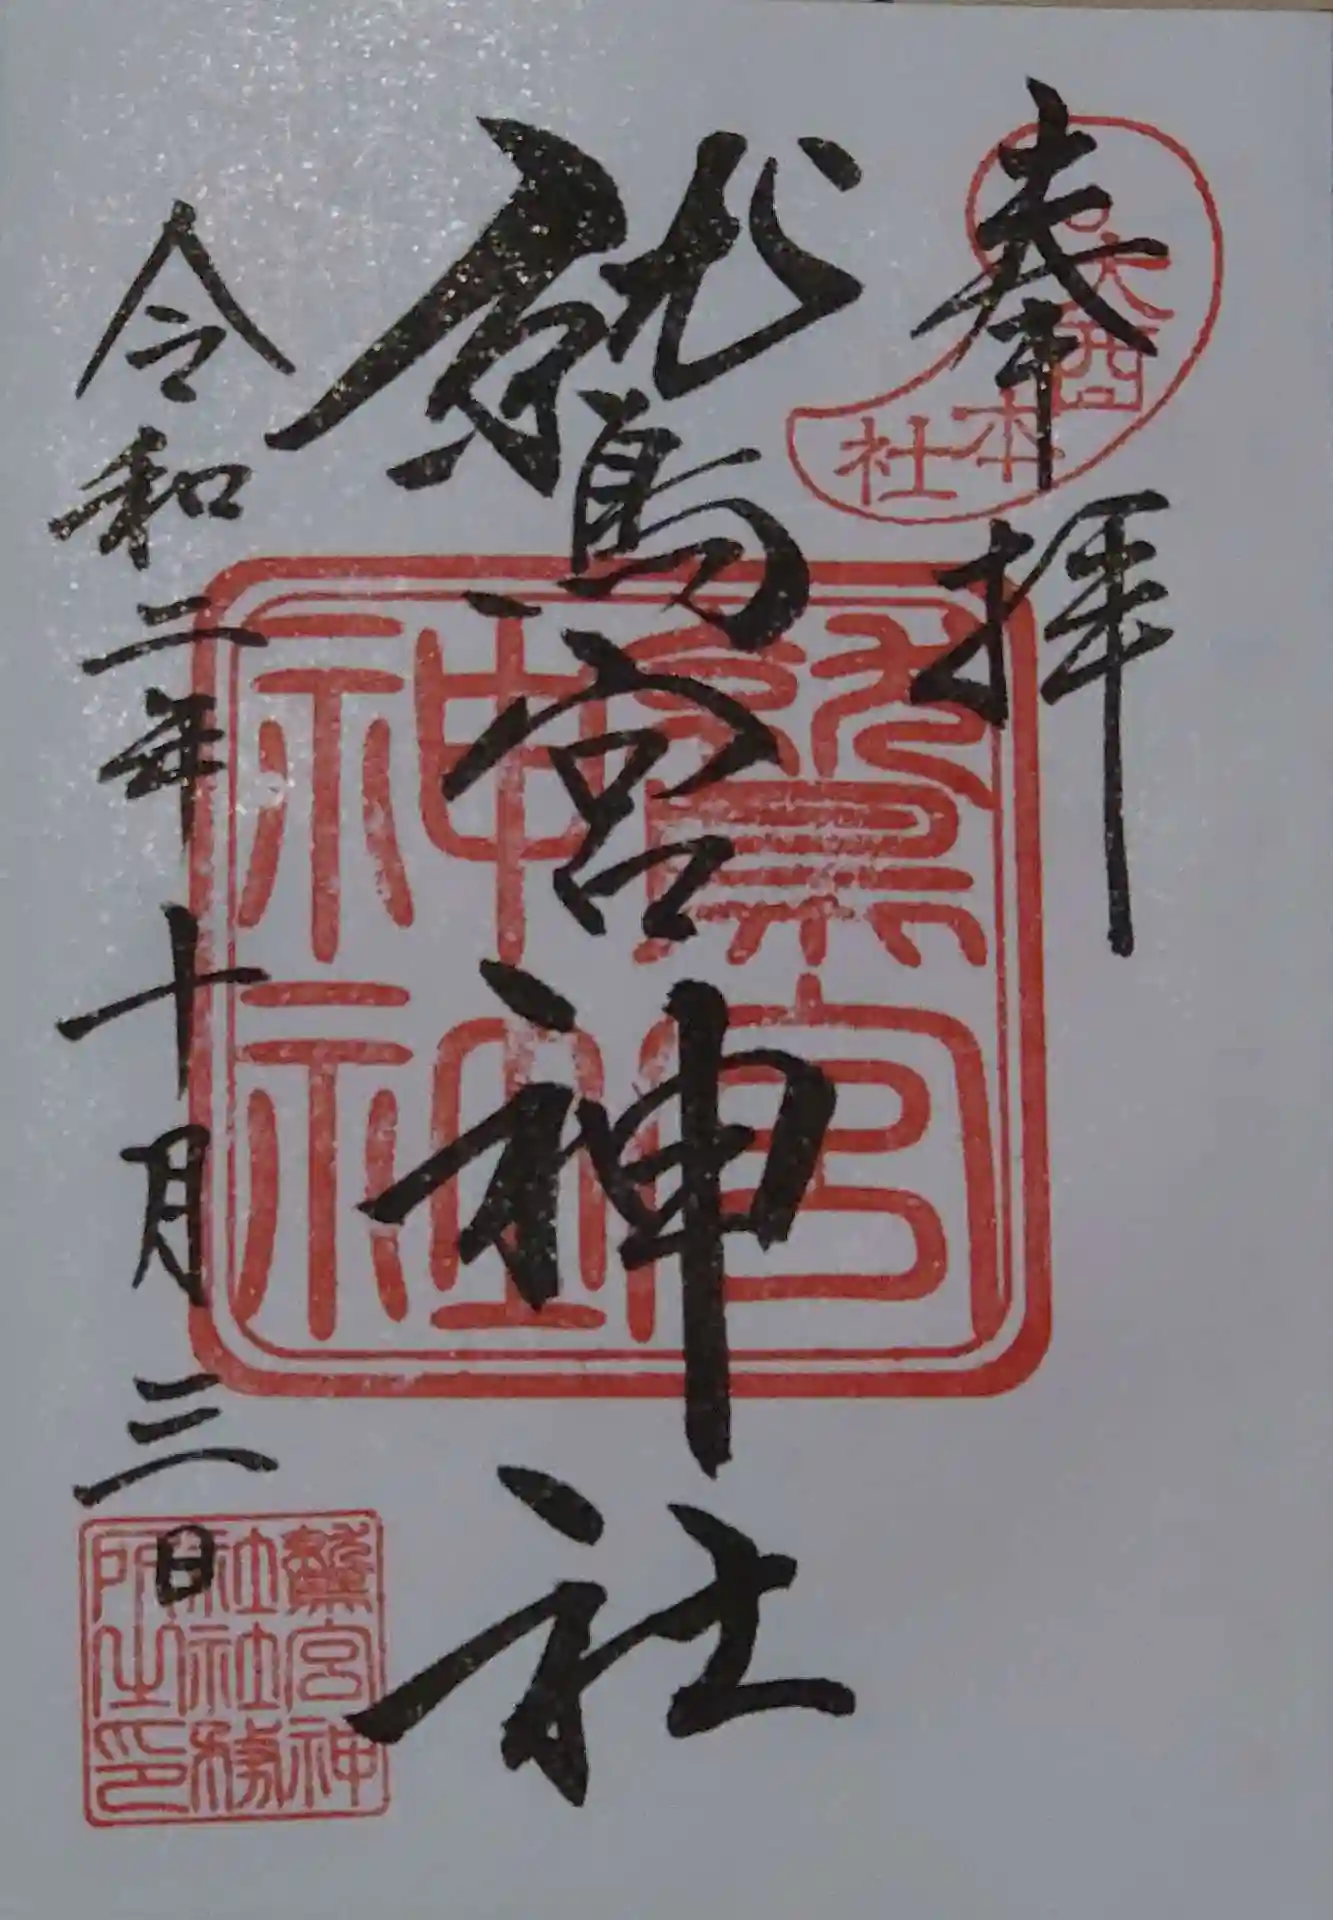 奉拝
お大酉
本社
鷲宮神社
鷲宮
神社
令和二年十月三日
鷲宮神
社社務
所之印